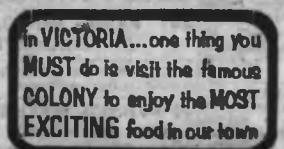 in VICTORIA... one thing you
MUST do is visit the famous
COLONY to enjoy the MOST
EXCITING food in our town